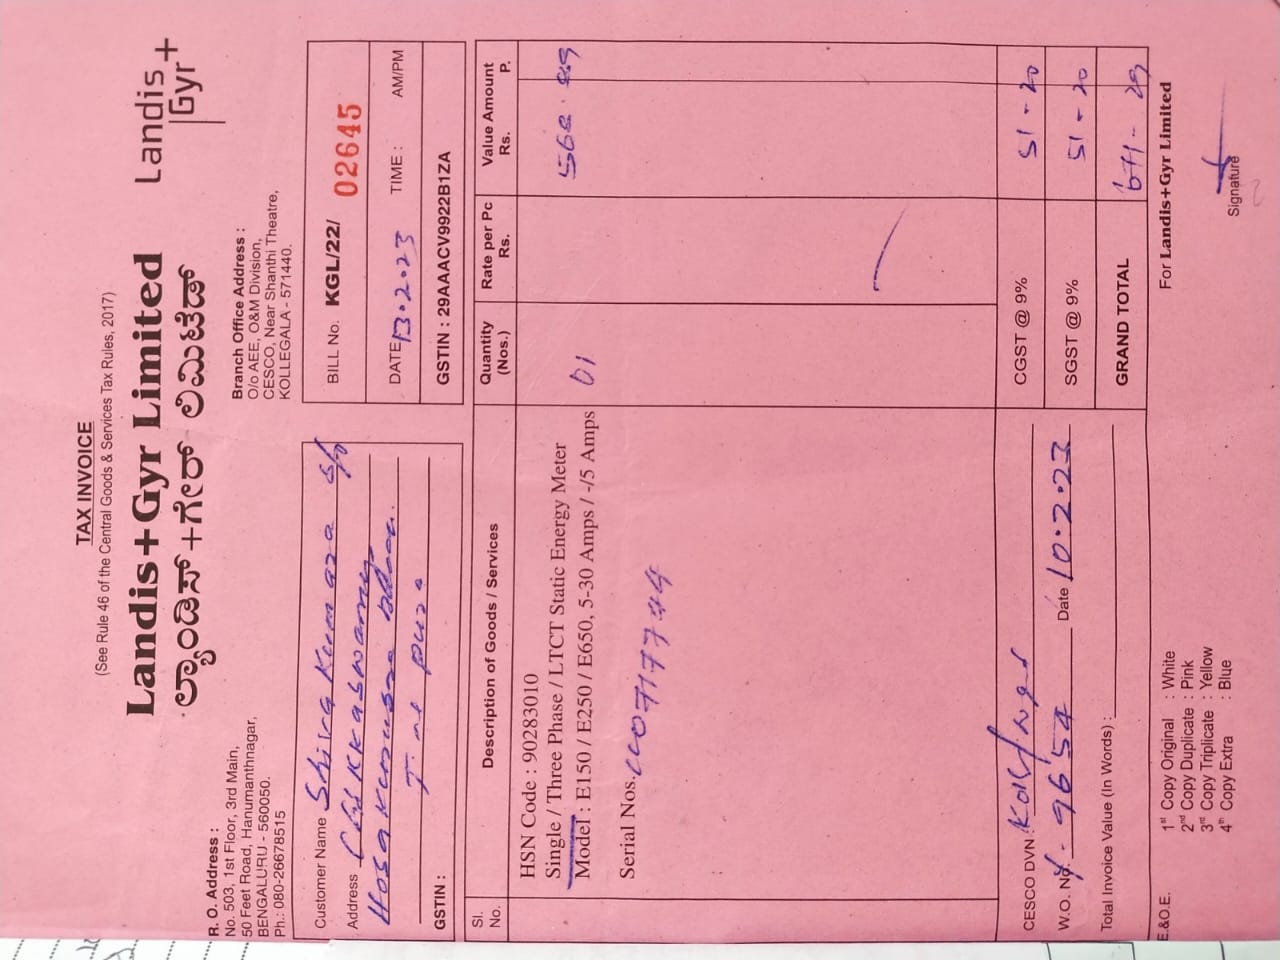 TAX INVOICE
(See Rule 46 of the Central Goods & Services Tax Rules, 2017)
Landis+Gyr Limited
ಲ್ಯಾಂಡಿಸ್+ಗೇರ್ ಲಿಮಿಟೆಡ್
Landis
Gyr+
R. O. Address :
No. 503, 1st Floor, 3rd Main,
50 Feet Road, Hanumanthnagar,
BENGALURU - 560050.
Ph.: 080-26678515
Branch Office Address :
O/o AEE, O&M Division,
CESCO, Near Shanthi Theatre,
KOLLEGALA - 571440.
Customer Name Shiva Kumara S/o
Address Chikkaswamy
GSTIN :
BILL No. KGL/22/ 02645
DATE 13.2.23 TIME : AM/PM
GSTIN : 29AAACV9922B1ZA
Sl. No. Description of Goods / Services Quantity (Nos.) Rate per Pc Rs. Value Amount Rs. P.
HSN Code : 90283010
Single / Three Phase / LTCT Static Energy Meter
Model : E150 / E250 / E650, 5-30 Amps / -/5 Amps 01
Serial Nos.
CESCO DVN. CGST @ 9% 51-20
W.O. No. 9654 Date 10.2.23 SGST @ 9% 51-20
Total Invoice Value (In Words) : GRAND TOTAL 671-29
E.&O.E.
1st Copy Original : White
2nd Copy Duplicate : Pink
3rd Copy Triplicate : Yellow
4th Copy Extra : Blue
For Landis+Gyr Limited
Signature